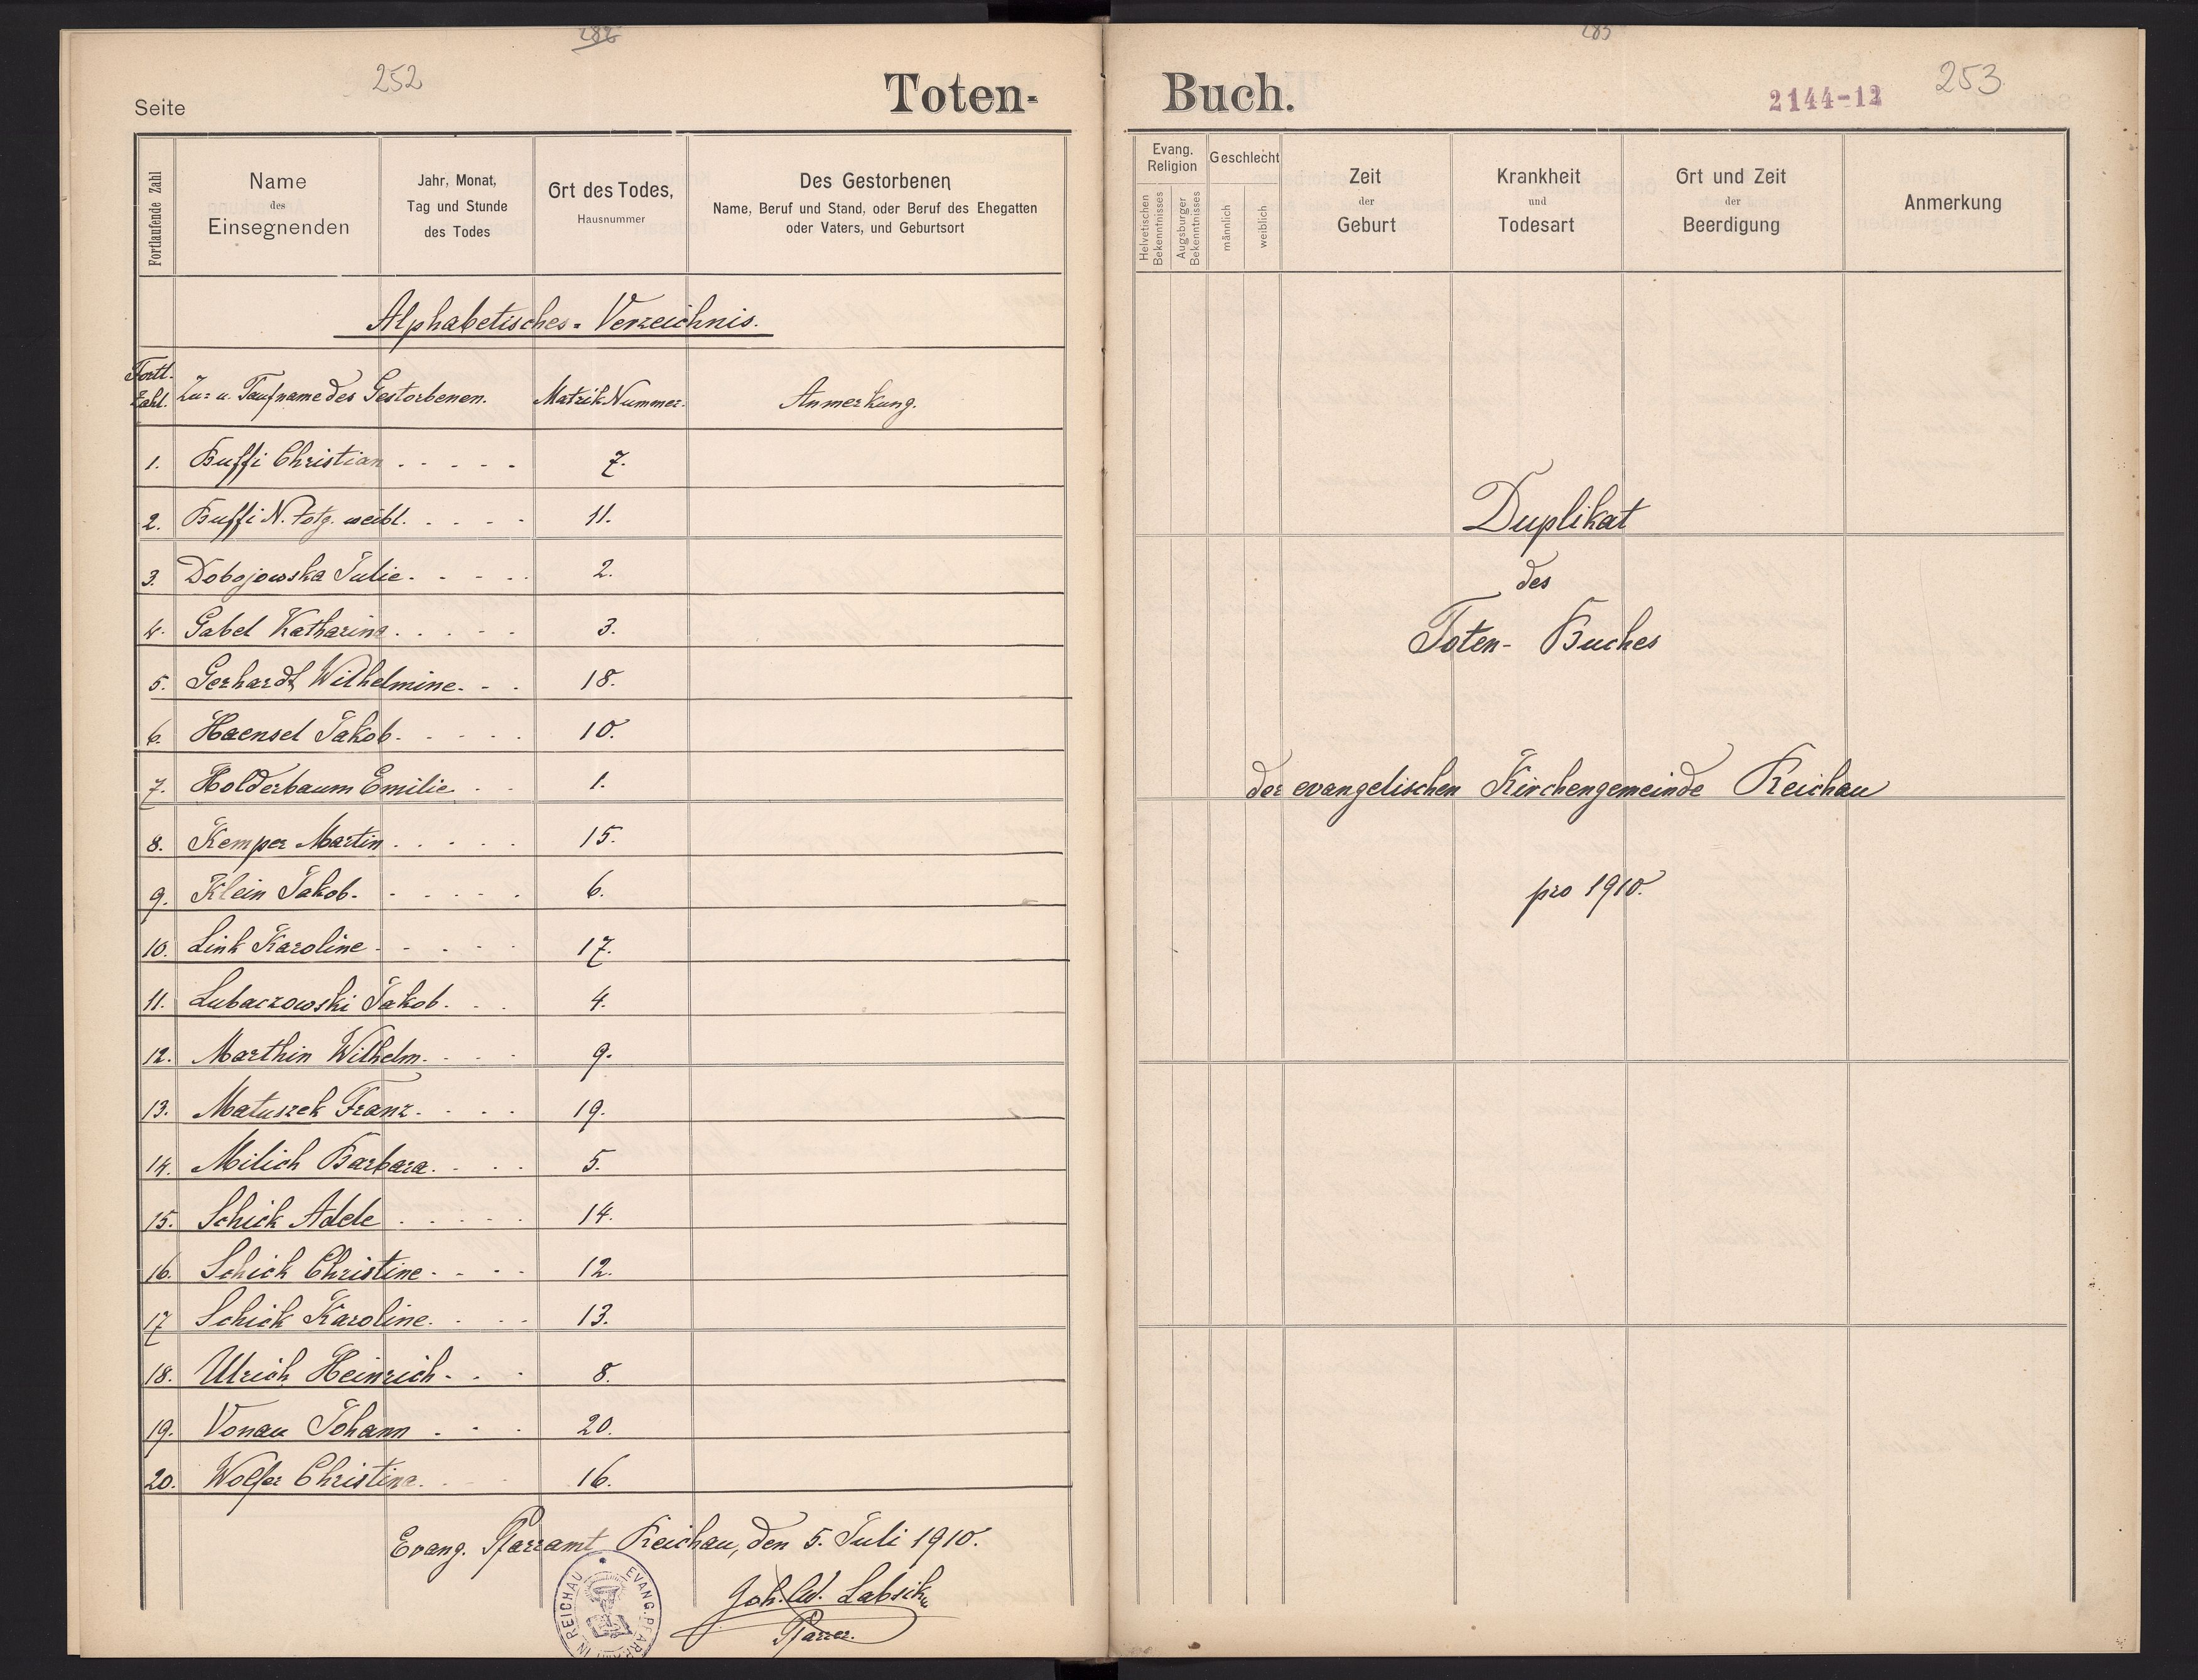 282
252
Seite
Toten-
Fortlaufende Zahl
Name
des
Einsegnenden
Jahr, Monat,
Tag und Stunde
des Todes
Ort des Todes,
Hausnummer
Des Gestorbenen
Name, Beruf und Stand, oder Beruf des Ehegatten
oder Vaters, und Geburtsort
Alphabetisches-Verzeichnis.
Fortl. Zahl. Zu- u. Taufname des Gestorbenen. Matrik Nummer. Anmerkung.
1. Buffi Christian . . . . . 7.
2. Buffi N. totg. weibl. . . . . 11.
3. Dobojowska Julie. . . . . 2.
4. Gabel Katharina . . . . . 3.
5. Gerhardt Wilhelmine. . . 18.
6. Haensel Jakob. . . . . 10.
7. Holderbaum Emilie . . 1.
8. Kemper Martin . . . . . 15.
9. Klein Jakob. . . . . . 6.
10. Link Karoline . . . . . 17.
11. Lubaczowski Jakob. . . 4.
12. Marthin Wilhelm. . . . 9.
13. Matuszek Franz. . . . 19.
14. Milich Barbara. . . . 5.
15. Schick Adele . . . . . 14.
16. Schick Christine. . . . 12.
17 Schick Karoline. . . . 13.
18. Ulrich Heinrich. . . 8.
19. Vonau Johann . . . 20.
20. Wolfer Christina. . . 16.
Evang. Pfarramt Reichau, den 5. Juli 1910.
EVANG. PFARRAMT IN REICHAU
Joh. Ed. Labsik
Pfarrer.
283
Buch.
2144-12
253
Evang.
Religion
Helvetischen
Bekenntnisses
Augsburger
Bekenntnisses
Geschlecht
männlich
weiblich
Zeit
der
Geburt
Krankheit
und
Todesart
Ort und Zeit
der
Beerdigung
Anmerkung
Duplikat
des
Toten- Buches
der evangelischen Kirchengemeinde Reichau
pro 1910.